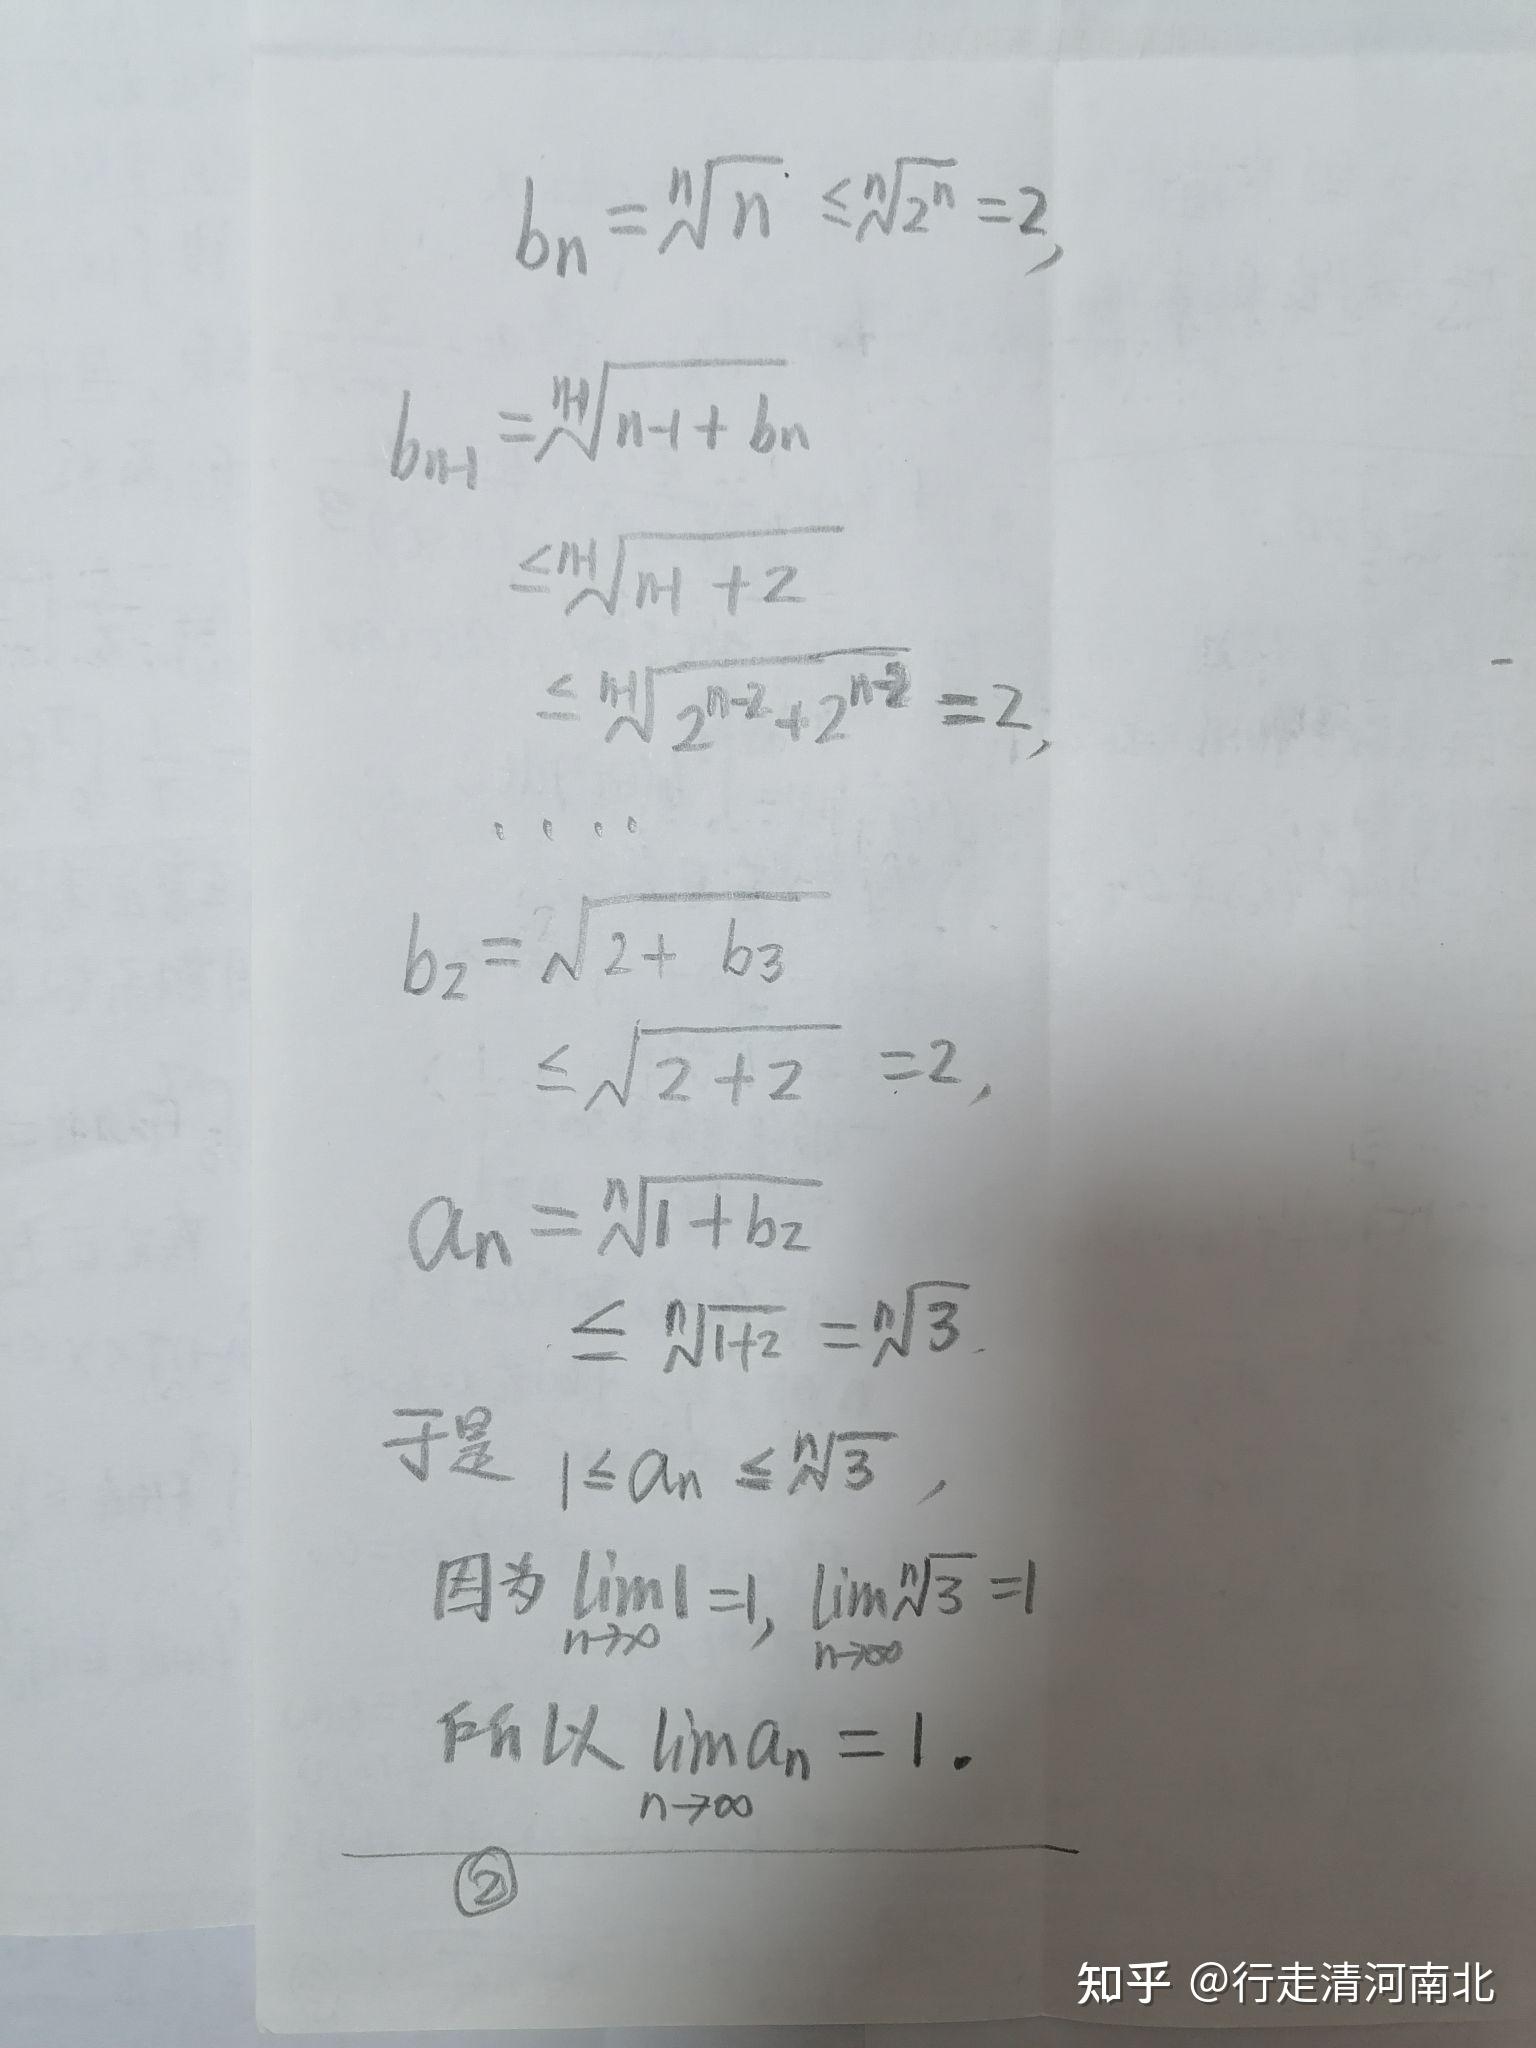 bₙ = ⁿ√n ≤ ⁿ√2ⁿ = 2,
bₙ₋₁ = ⁿ⁻¹√(n-1 + bₙ)
≤ ⁿ⁻¹√(n-1 + 2)
≤ ⁿ⁻¹√(2ⁿ⁻² + 2ⁿ⁻²) = 2,
....
b₂ = √(2 + b₃)
≤ √(2 + 2) = 2,
aₙ = ⁿ√(1 + b₂)
≤ ⁿ√(1+2) = ⁿ√3.
于是 1 ≤ aₙ ≤ ⁿ√3,
因为 lim 1 = 1, lim ⁿ√3 = 1
n→∞ n→∞
所以 lim aₙ = 1.
n→∞
②
知乎 @行走清河南北